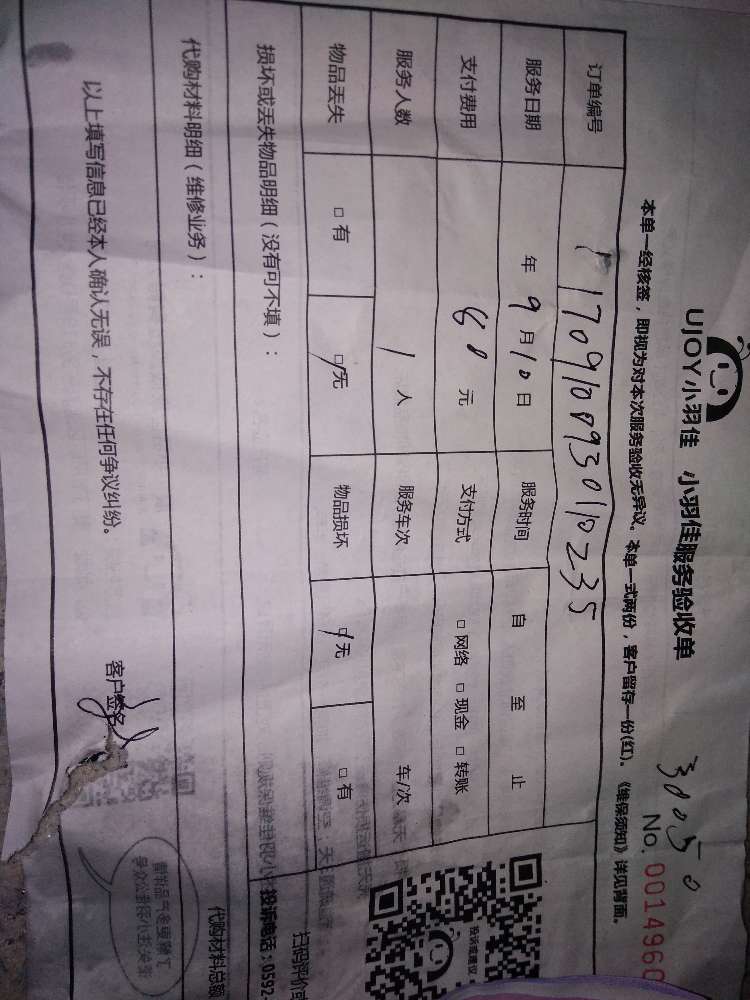 UJOY小羽佳 小羽佳服务验收单
30050
No. 0014960
本单一经核签，即视为对本次服务验收无异议。本单一式两份，客户留存一份(红)。《维保须知》详见背面。
订单编号 1170910093010235
服务日期 年 9 月 10 日 服务时间 自 至 止
支付费用 80 元 支付方式 □网络 □现金 □转账
服务人数 1 人 服务车次 车/次
物品丢失 □有 □无 物品损坏 □无 □有
损坏或丢失物品明细（没有可不填）：
代购材料明细（维修业务）：
代购材料总额
以上填写信息已经本人确认无误，不存在任何争议纠纷。
客户签名
投诉或建议
扫码评价
投诉电话：0592-